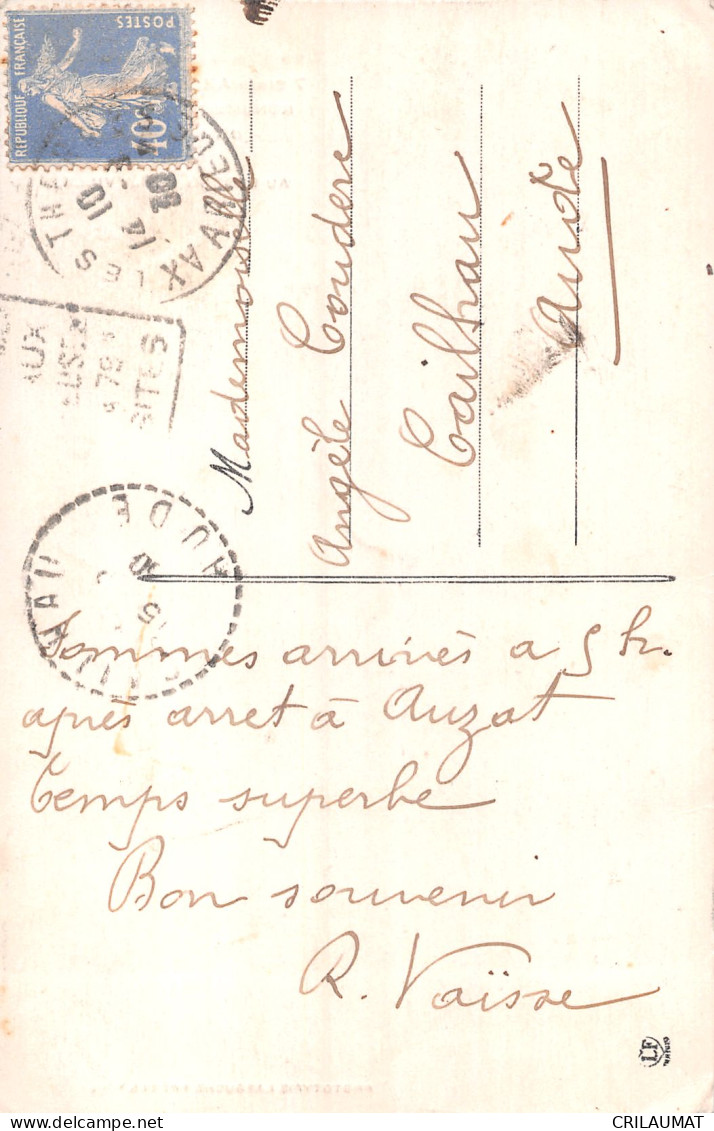 POSTES
REPUBLIQUE FRANÇAISE
40c
AX LES THE
14
10
30
AUX
75
SITES
AUDE
Mademoiselle
Angèle Coudere
Cailhau
Aude
Sommes arrivés a 5 h.
après arret à Auzat
temps superbe
Bon souvenir
R. Vaïsse
LF
CRILAUMAT